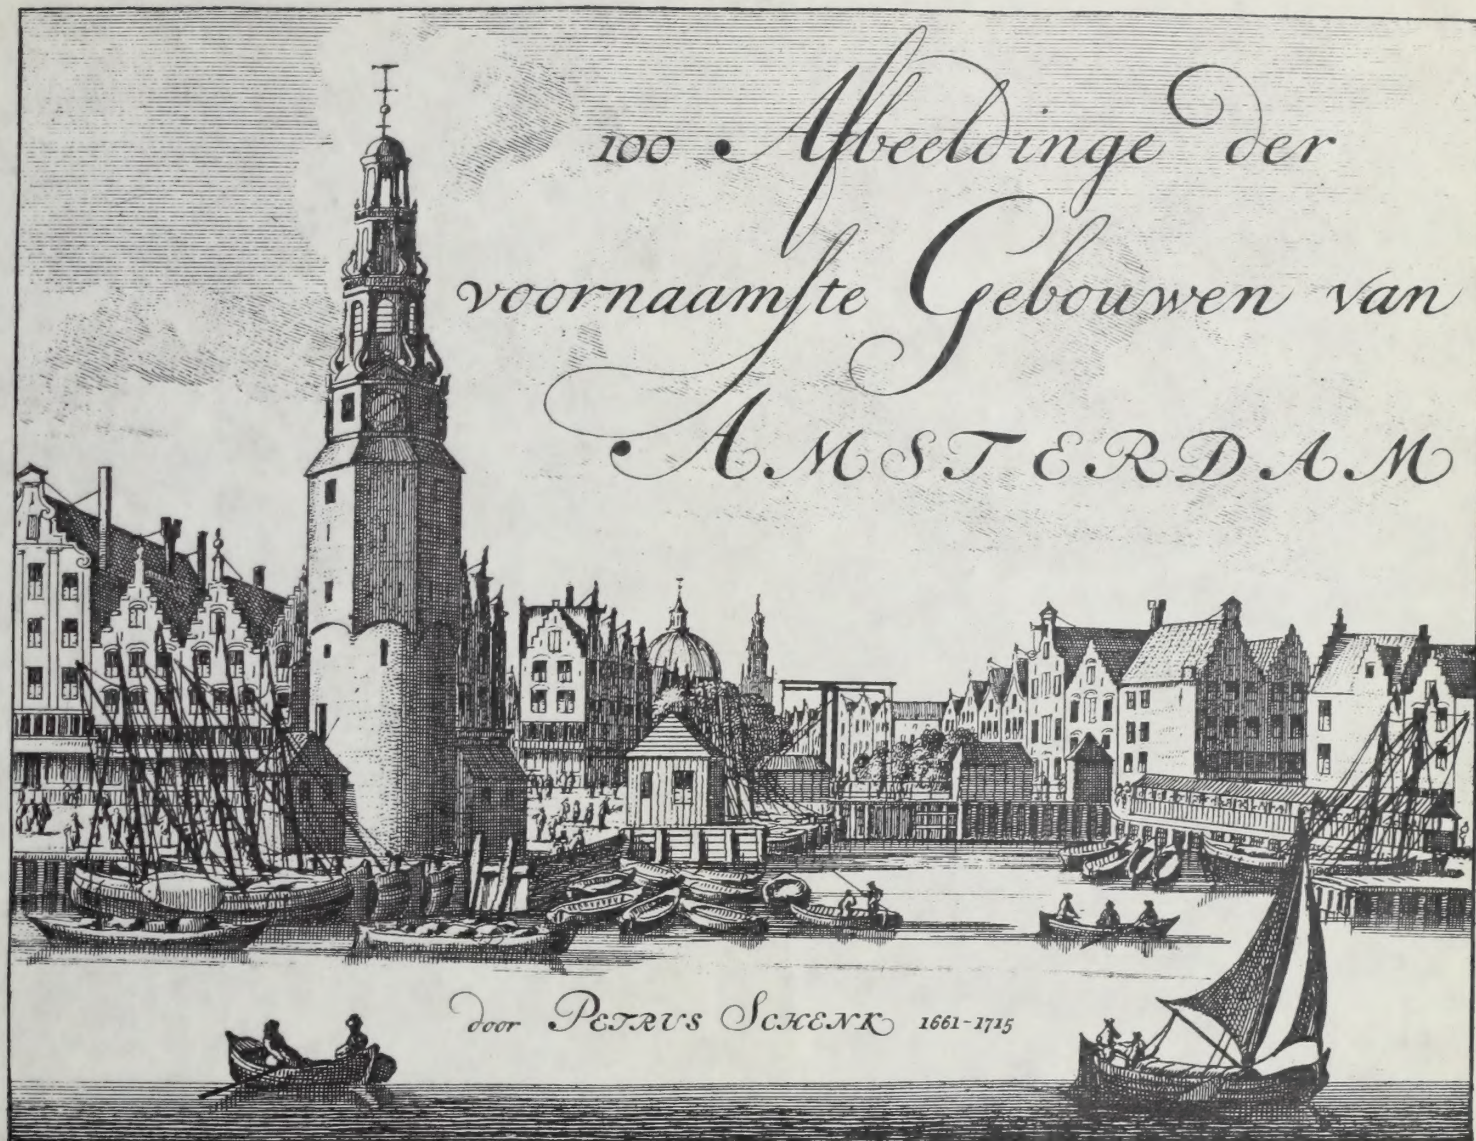 100 Afbeeldinge der
voornaamſte Gebouwen van
AMSTERDAM
door PETRUS SCHENK 1661-1715